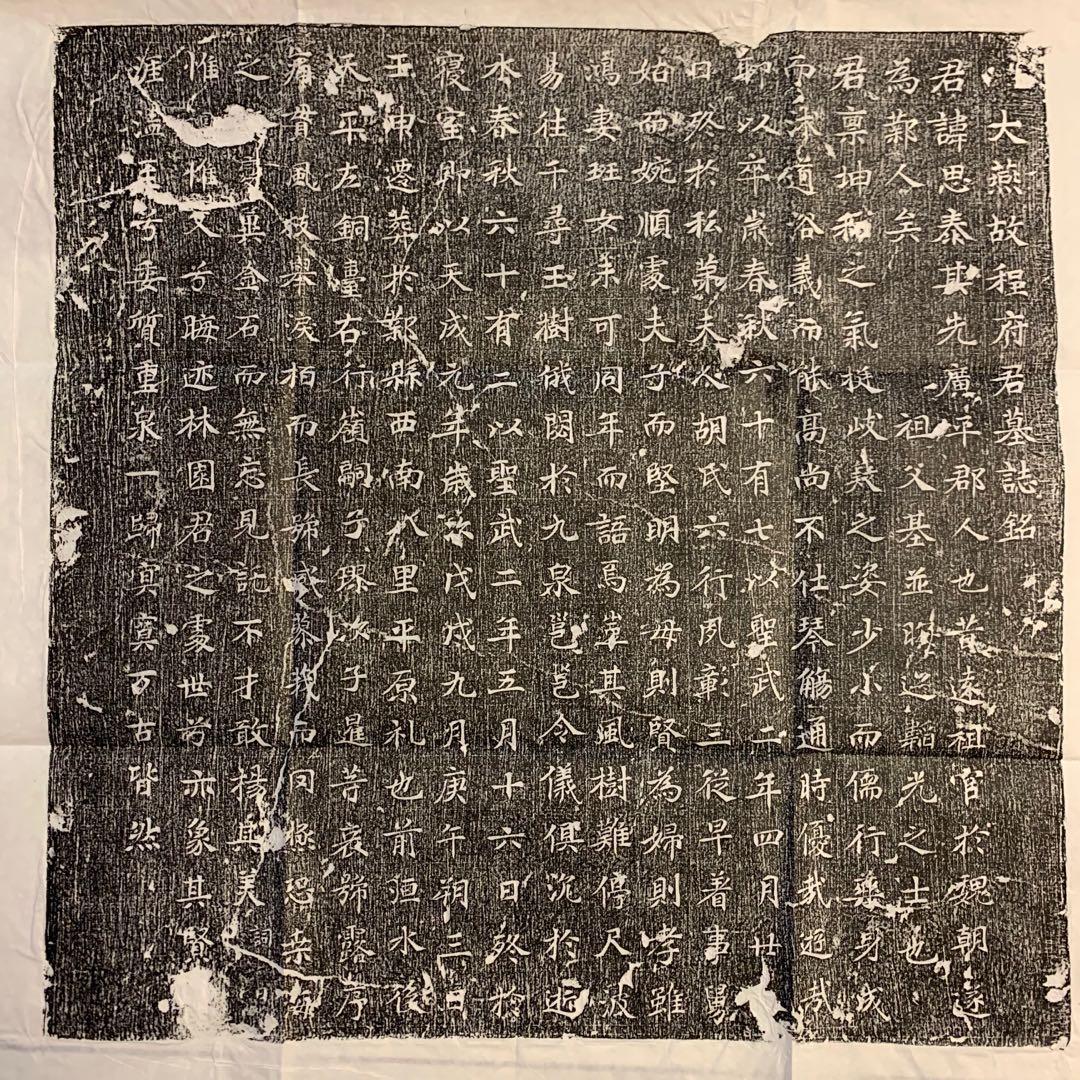 大燕故程府君墓誌銘
君諱思泰其先廣平郡人也昔遠祖官於魏朝遂
為鄴人矣 祖父基並晦迹韜光之士也
君稟坤和之氣挺岐嶷之姿少小而儒行莫身成
而未道谷義而能高尚不仕琴觴通時優哉遊哉
聊以卒歲春秋六十有七以聖武二年四月廿
日終於私第夫人胡氏六行夙彰三從早著事舅
始而婉順處夫子而堅明為母則賢為婦則孝雖
鴻妻班女未可同年而語焉豈其風樹難停尺波
易往千尋玉樹俄閟於九泉邕邕令儀俱沉於逝
水春秋六十有二以聖武二年五月十六日終於
寢室即以天成元年歲次戊戌九月庚午朔三日
壬申遷葬於鄴縣西南八里平原礼也前洹水後
天平左銅臺右行嶺嗣子璆次子暹等哀號露序
痛貫風枝攀淚柏而長號感蓼莪而同極恐桑海
之 金石而無忘見託不才敢楊其美詞
惟 文兮晦迹林園君之處世兮亦象其賢
玉兮委質重泉一歸寘奠万古皆然